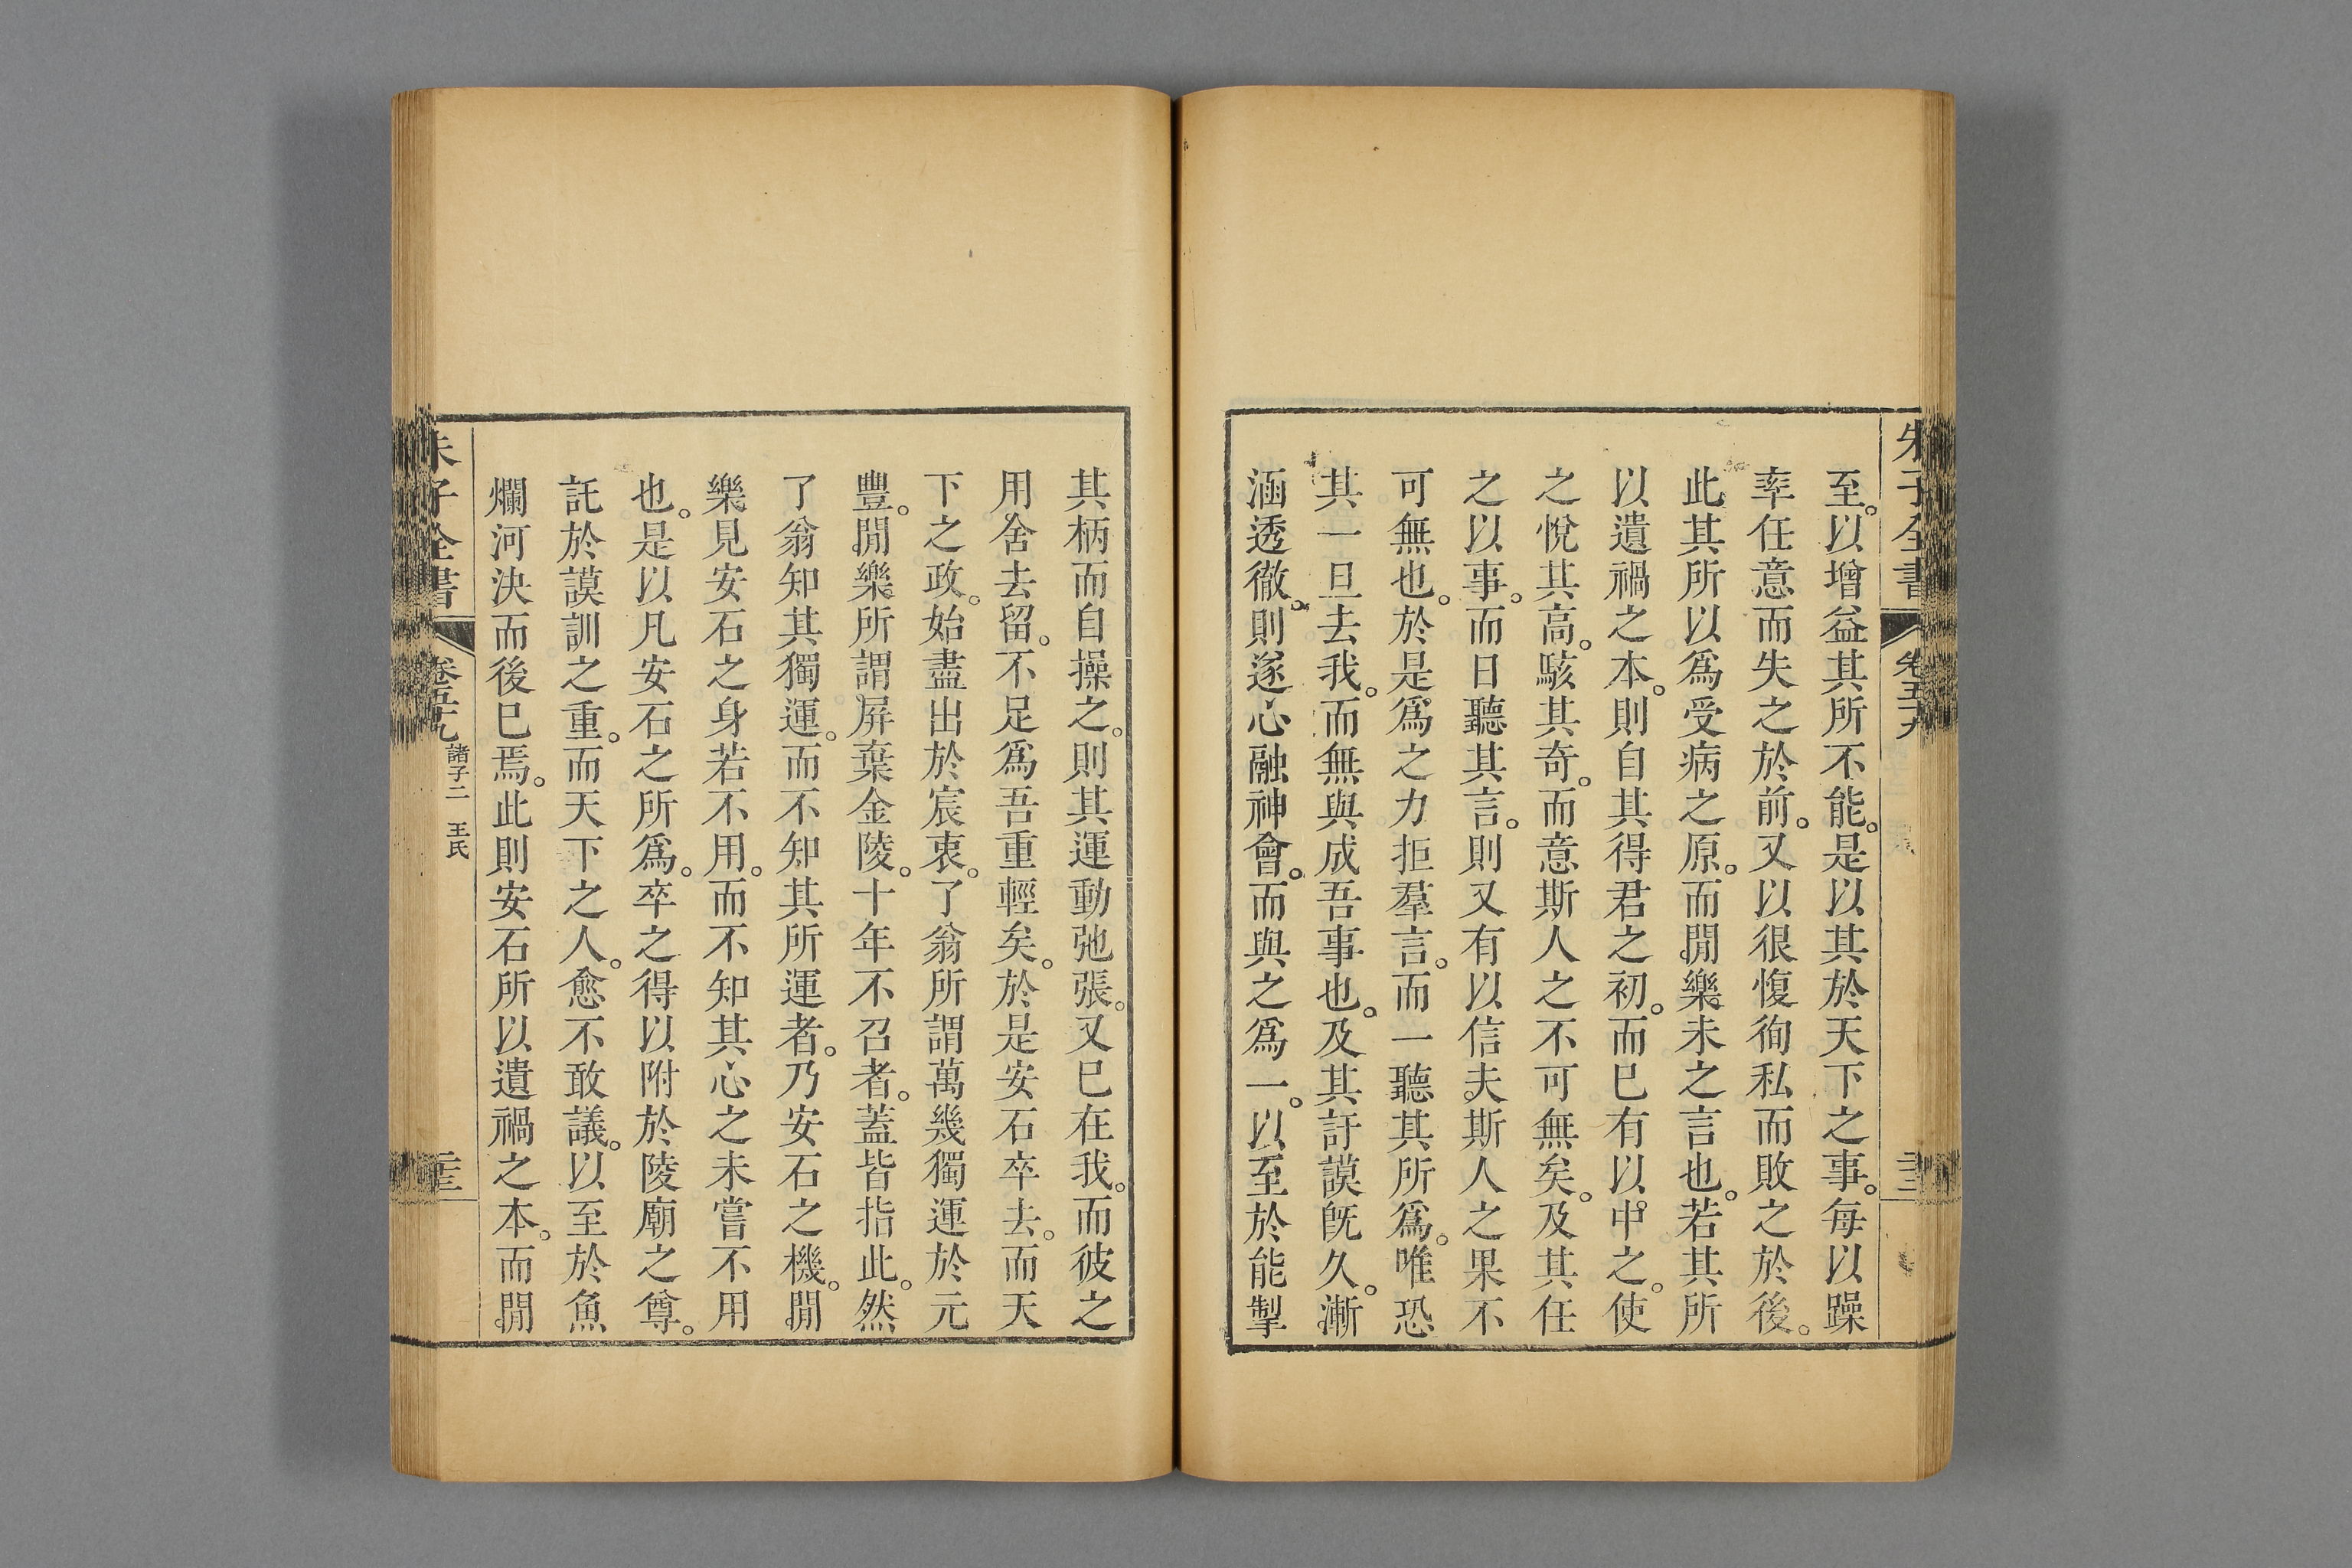 朱子全書 卷五十九
至。以增益其所不能。是以其於天下之事。每以躁
率任意而失之於前。又以很愎徇私而敗之於後。
此其所以爲受病之原。而閒樂未之言也。若其所
以遺禍之本。則自其得君之初。而已有以中之。使
之悅其高。駭其奇。而意斯人之不可無矣。及其任
之以事。而日聽其言。則又有以信夫斯人之果不
可無也。於是爲之力拒羣言。而一聽其所爲。唯恐
其一旦去我。而無與成吾事也。及其訏謨旣久。漸
涵透徹。則遂心融神會。而與之爲一。以至於能掣
其柄而自操之。則其運動弛張。又已在我。而彼之
用舍去留。不足爲吾重輕矣。於是安石卒去。而天
下之政。始盡出於宸衷。了翁所謂萬幾獨運於元
豐。閒樂所謂屏棄金陵。十年不召者。蓋皆指此。然
了翁知其獨運。而不知其所運者。乃安石之機。閒
樂見安石之身若不用。而不知其心之未嘗不用
也。是以凡安石之所爲。卒之得以附於陵廟之尊。
託於謨訓之重。而天下之人。愈不敢議。以至於魚
爛河決而後已焉。此則安石所以遺禍之本。而閒
朱子全書 卷五十九 諸子二 王氏